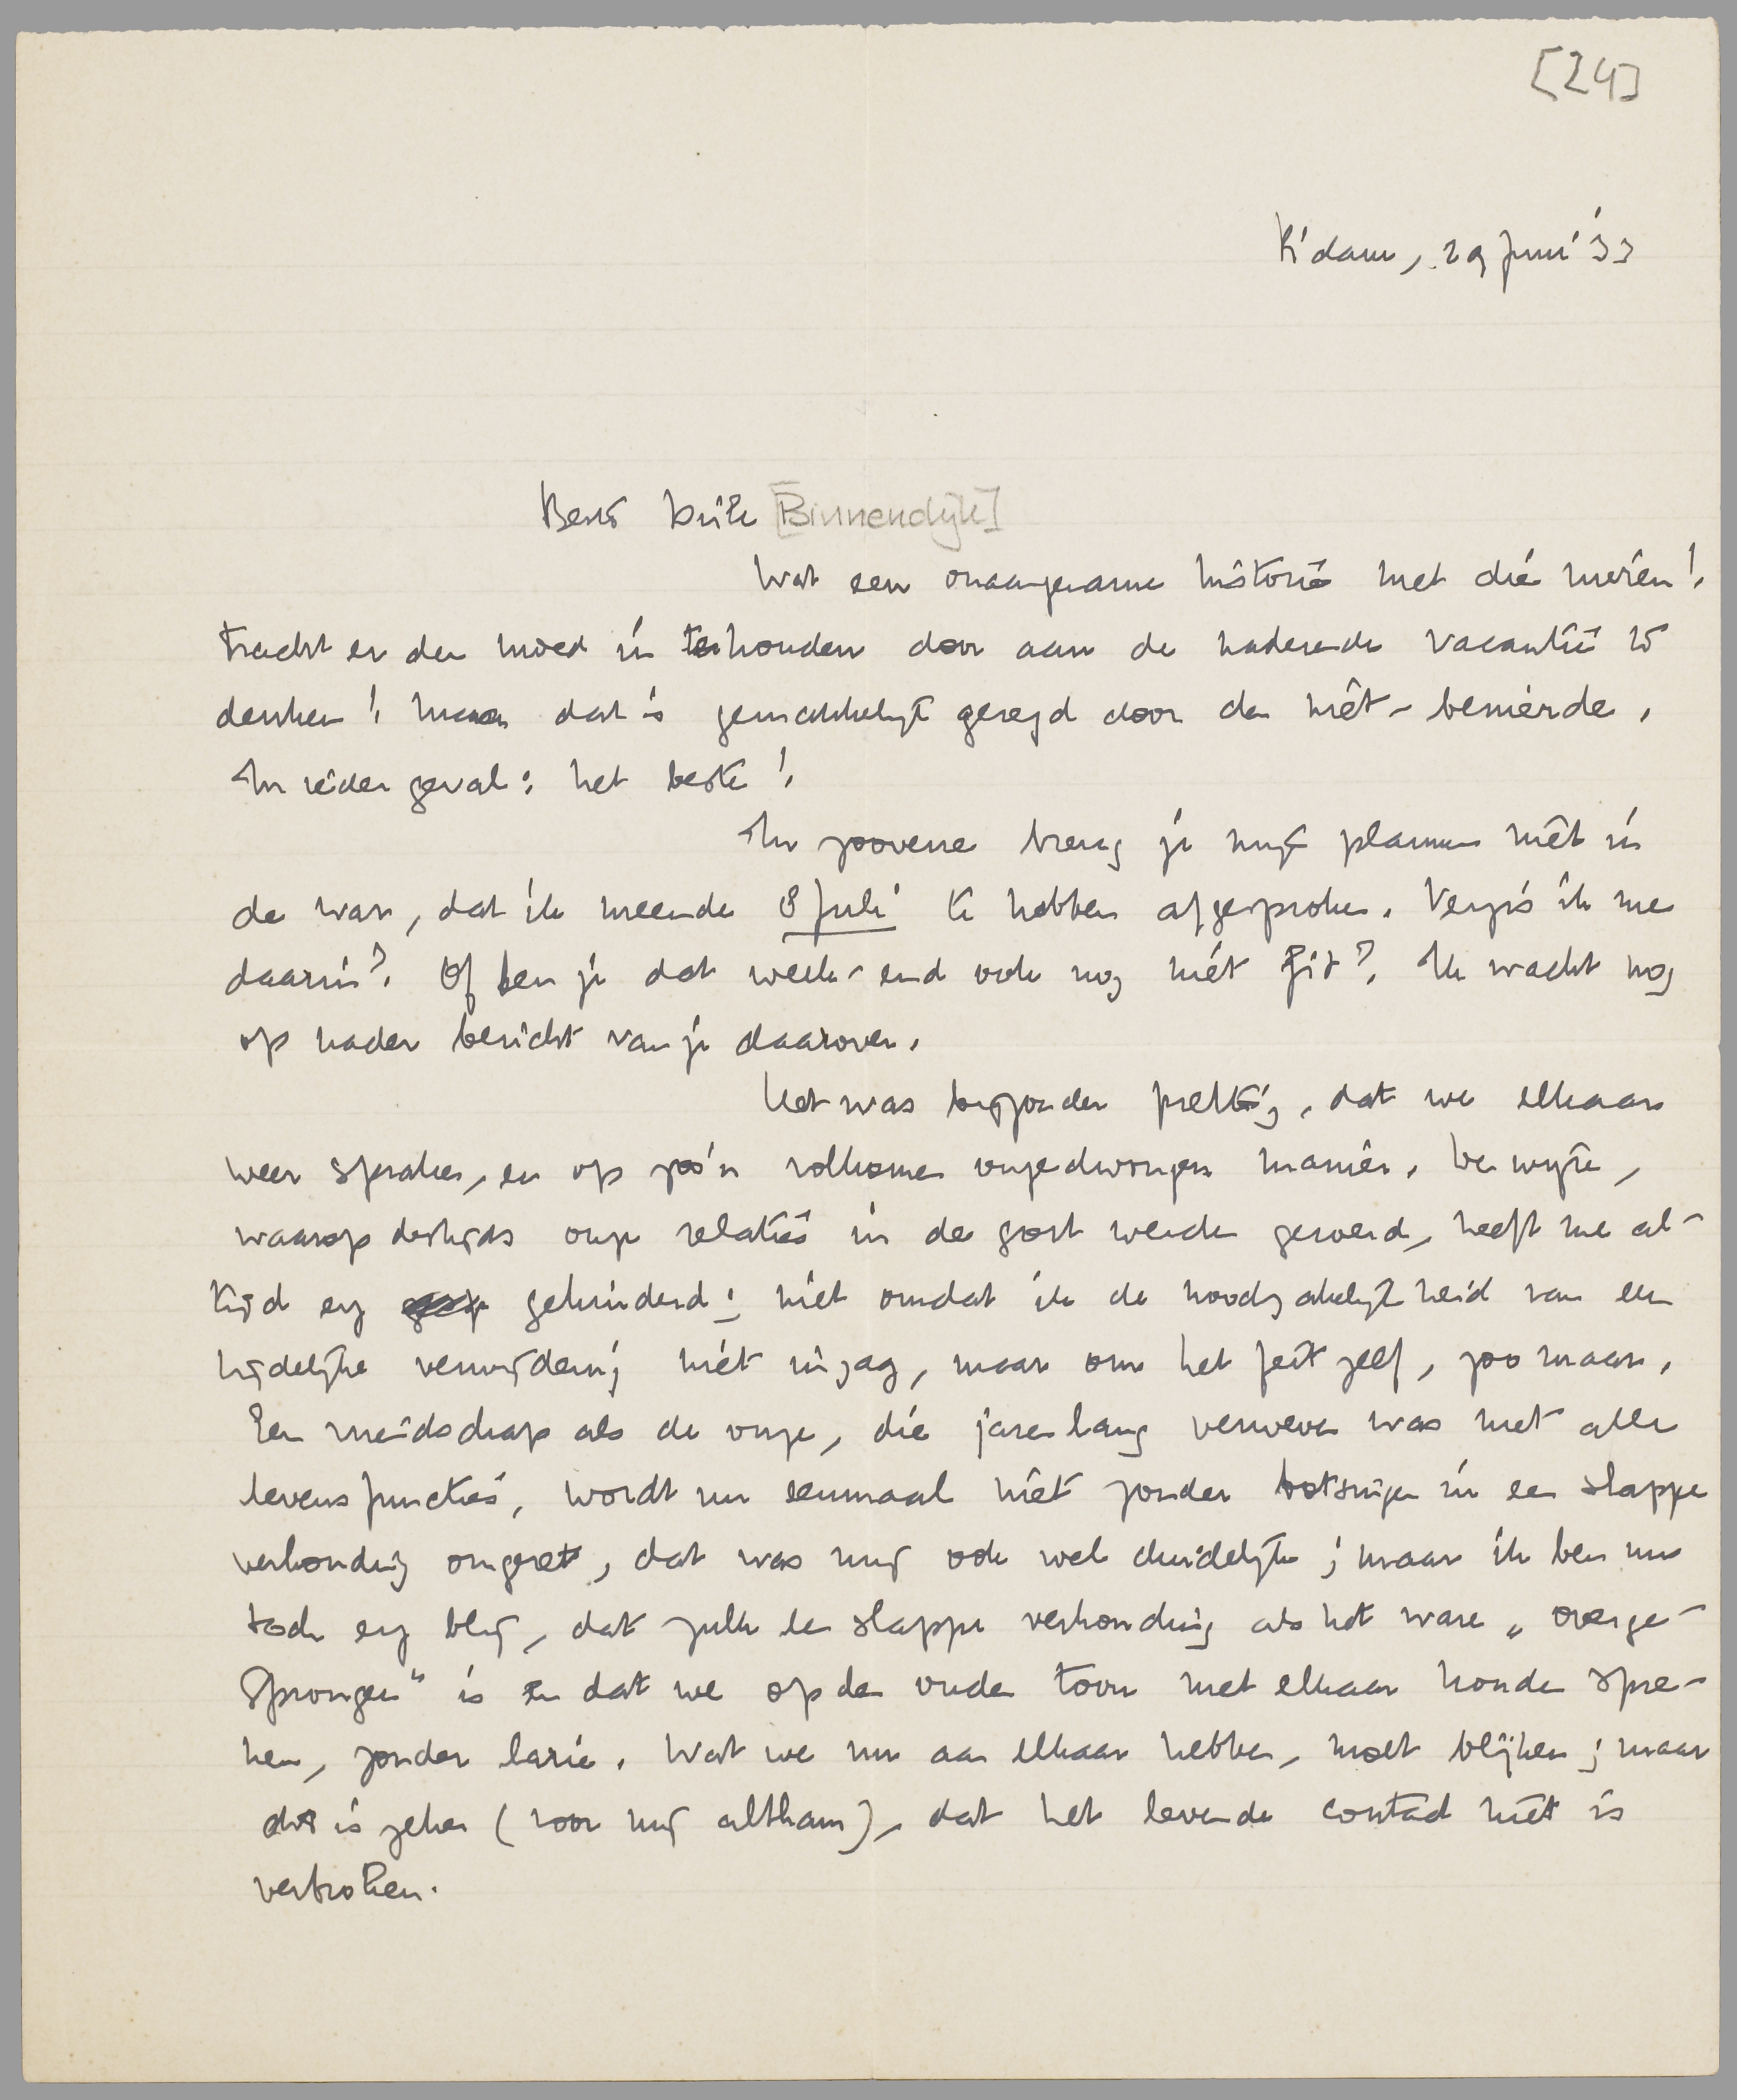 [24]
R'dam, 29 Juni '33
Beste Dick [Binnendijk]
Wat een onaangename historie met die nieren!
Tracht er den moed in te houden door aan de naderende vacantie te
denken! Maar dat is gemakkelijk gezegd door den niet-benierde.
In ieder geval: het beste!
In zooverre breng je mijn plannen niet in
de war, dat ik meende 8 Juli te hebben afgesproken. Vergis ik me
daarin? Of ben je dat week-end ook nog niet fit? Ik wacht nog
op nader bericht van je daarover.
Het was bijzonder prettig, dat we elkaar
weer spraken, en op zoo'n volkomen ongedwongen manier. De wijze,
waarop destijds onze relaties in de goot werden geveerd, heeft me al-
tijd erg gehinderd; niet omdat ik de noodzakelijkheid van een
tijdelijke verwijdering niet inzag, maar om het feit zelf, zoo maar.
Een vriendschap als de onze, die jarenlang verweven was met alle
levensfuncties, wordt nu eenmaal niet zonder botsingen in een slappe
verhouding omgezet, dat was mij ook wel duidelijk; maar ik ben nu
toch erg blij, dat zulk een slappe verhouding als het ware „overge-
sprongen" is en dat we op den ouden toon met elkaar konden spre-
ken, zonder larie. Wat we nu aan elkaar hebben, moet blijken; maar
dit is zeker (voor mij althans), dat het levende contact niet is
verbroken.